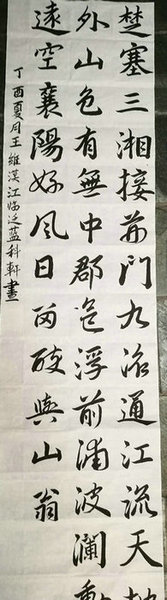 楚塞三湘接荊門九派通江流天
外山色有無中郡邑浮前浦波瀾動
遠空襄陽好風日留醉與山翁
丁酉夏月王維漢江临泛蓝科軒書